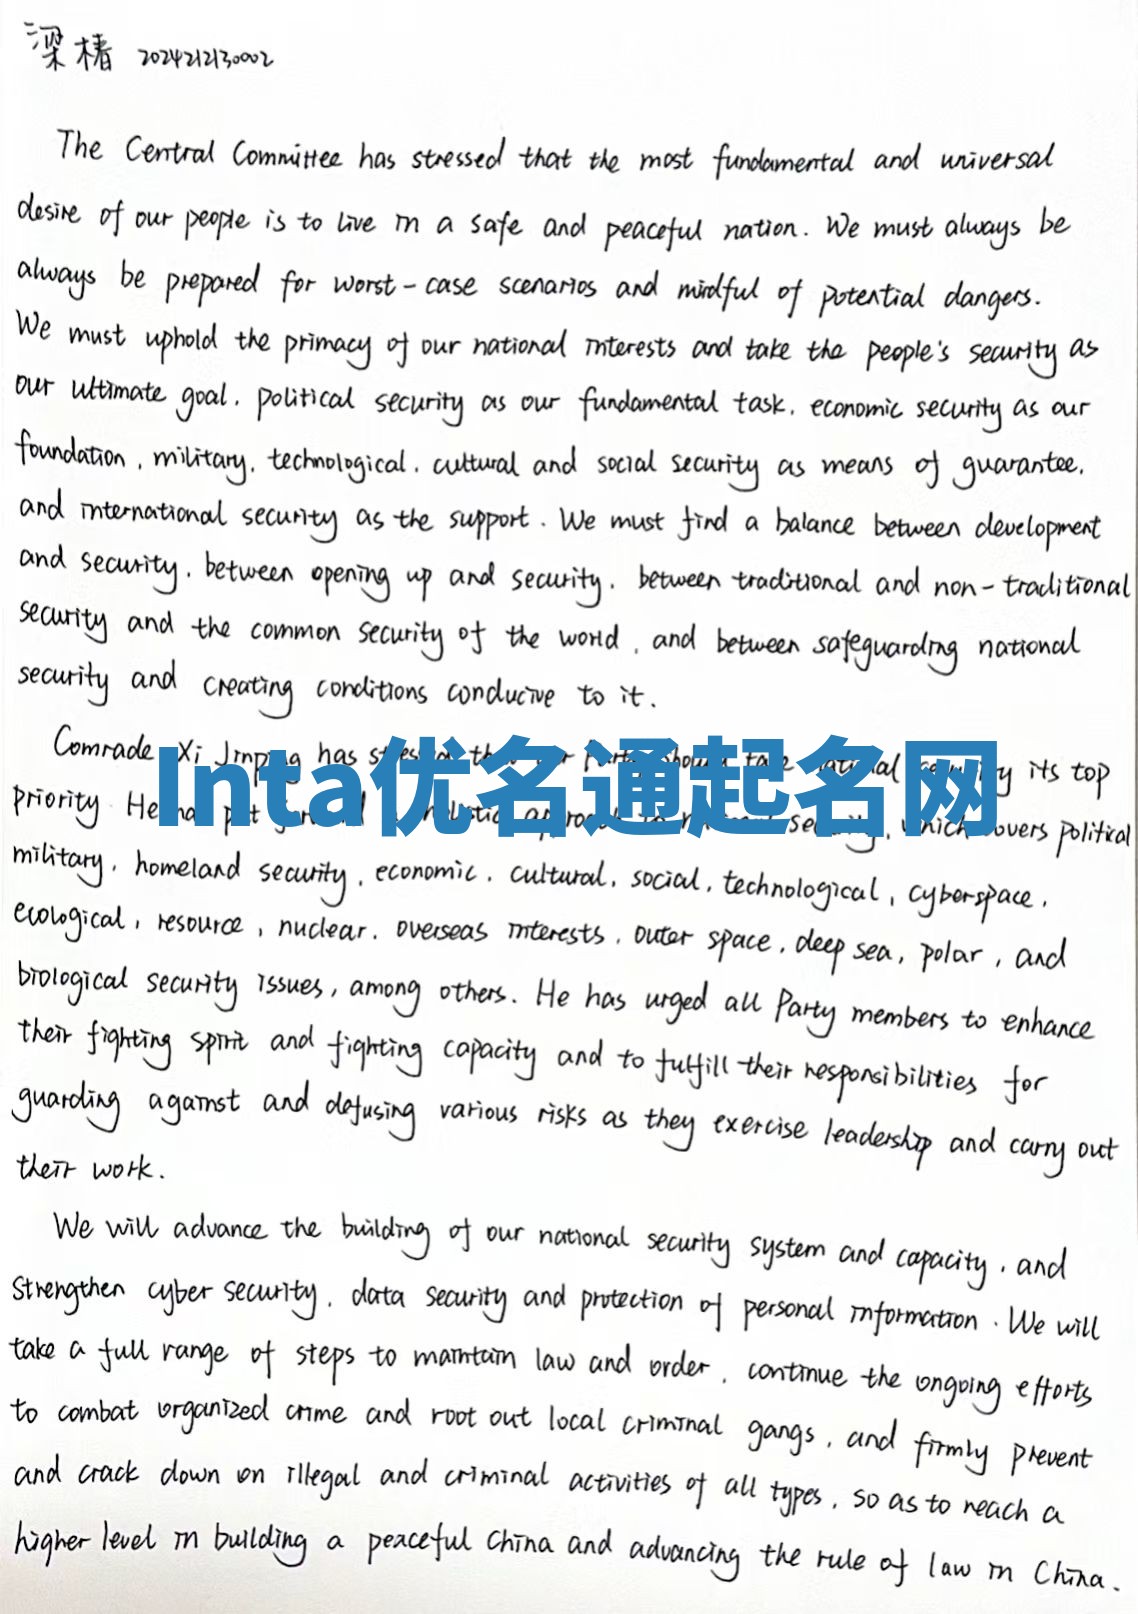 梁椿 2024212130002
The Central Committee has stressed that the most fundamental and universal
desire of our people is to live in a safe and peaceful nation. We must always be
always be prepared for worst-case scenarios and mindful of potential dangers.
We must uphold the primacy of our national interests and take the people's security as
our ultimate goal, political security as our fundamental task, economic security as our
foundation, military, technological, cultural and social security as means of guarantee,
and international security as the support. We must find a balance between development
and security, between opening up and security, between traditional and non-traditional
security and the common security of the world, and between safeguarding national
security and creating conditions conducive to it.
Comrade Xi Jinping has stressed national its top
Inta优名通起名网
priority. He has put which covers political
military, homeland security, economic, cultural, social, technological, cyberspace,
ecological, resource, nuclear, overseas interests, outer space, deep sea, polar, and
biological security issues, among others. He has urged all Party members to enhance
their fighting spirit and fighting capacity and to fulfill their responsibilities for
guarding against and defusing various risks as they exercise leadership and carry out
their work.
We will advance the building of our national security system and capacity, and
strengthen cyber security, data security and protection of personal information. We will
take a full range of steps to maintain law and order, continue the ongoing efforts
to combat organized crime and root out local criminal gangs, and firmly prevent
and crack down on illegal and criminal activities of all types, so as to reach a
higher level in building a peaceful China and advancing the rule of law in China.